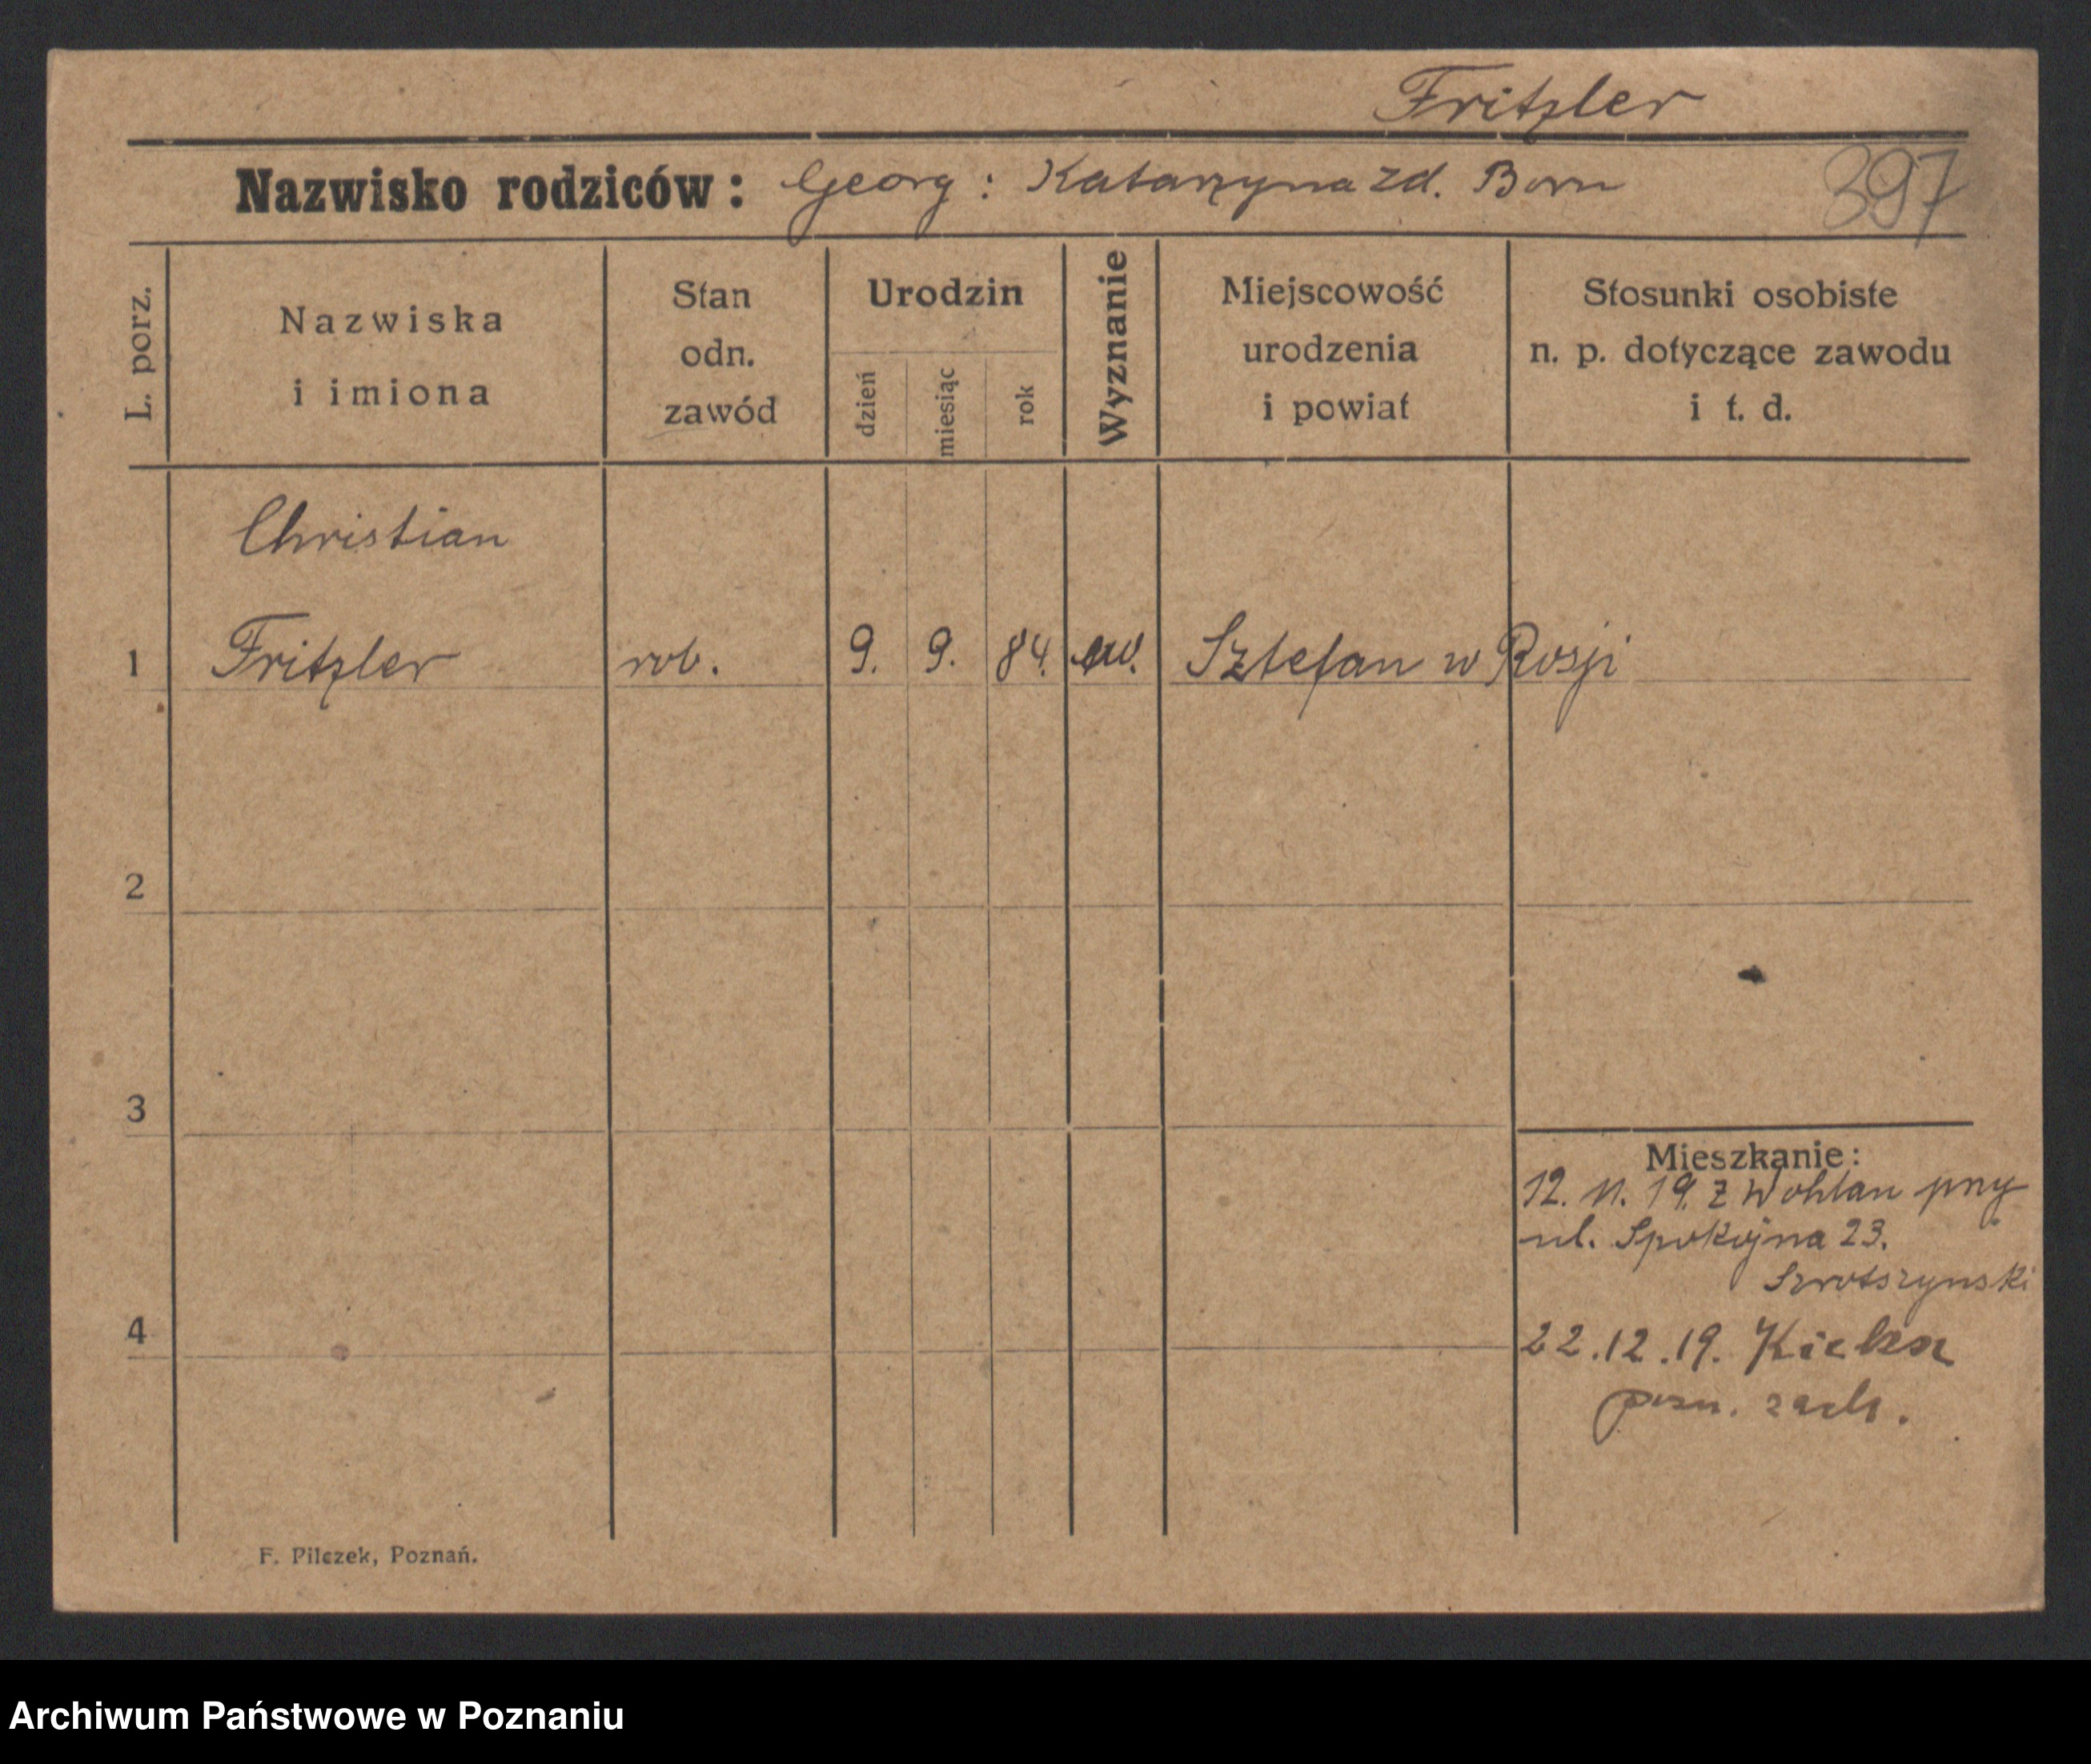 Fritzler
Nazwisko rodziców: Georg: Katarzyna zd. Born
397
L. porz.
Nazwiska
i imiona
Stan
odn.
zawód
Urodzin
dzień
miesiąc
rok
Wyznanie
Miejscowość
urodzenia
i powiat
Stosunki osobiste
n. p. dotyczące zawodu
i t. d.
Christian
1 Fritzler rob. 9. 9. 84. ew. Sztefan w Rosji
2
3
Mieszkanie:
12. 11. 19. z Wohlau
ul. Spokojna 23.
4
22.12.19. Kiekrz
pozn. zach.
F. Pilczek, Poznań.
Archiwum Państwowe w Poznaniu